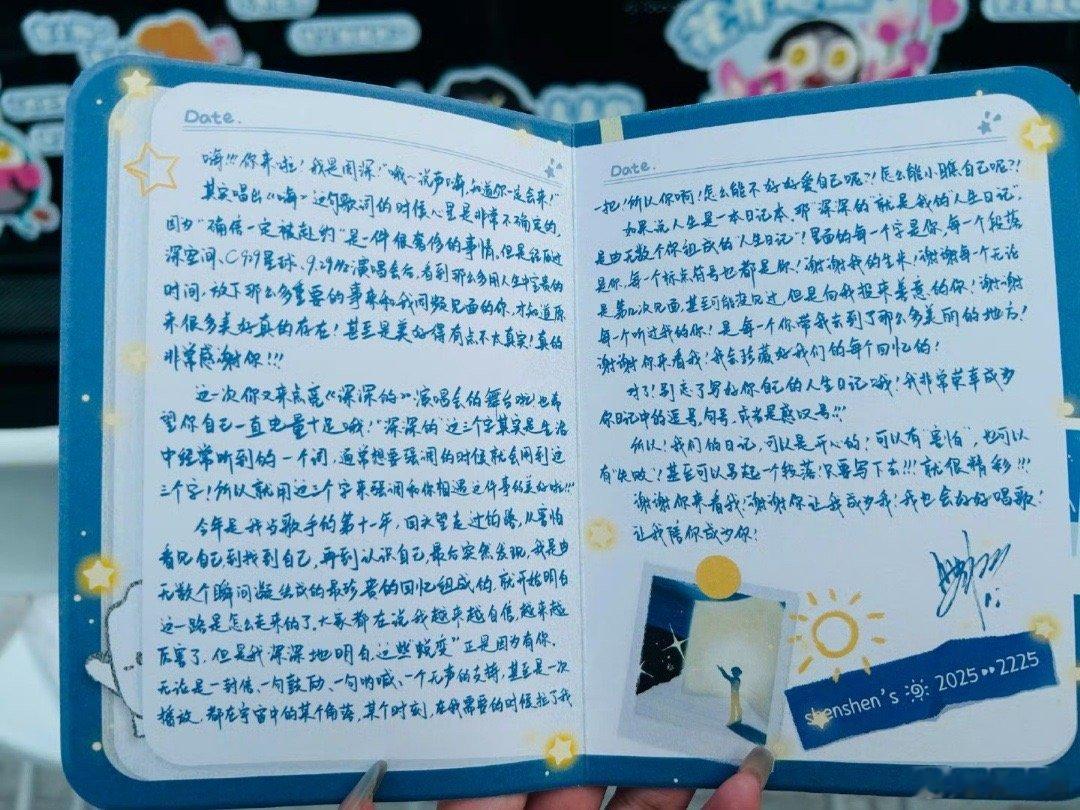 Date.
嗨!!!你来啦!我是周深!"哦~说声嗨,知道你一定会来!"
其实唱出"嗨"这句歌词的时候心里是非常不确定的,
因为"确信一定被赴约"是一件很奢侈的事情,但是经历过
深空间、C929星球、9.29Hz演唱会后,看到那么多用人生中宝贵的
时间,放下那么多重要的事来和我同频见面的你,才知道原
来很多美好真的存在!甚至是美好得有点不太真实!真的
非常感谢你!!!
这一次你又来点亮《深深的》演唱会的舞台啦,也希
望你自己一直电量十足哦!"深深的"这三个字其实是生活
中经常听到的一个词,通常想要强调的时候就会用到这
三个字!所以就用这三个字来强调和你相遇这件事的美好啦!!!
今年是我当歌手的第十一年,回头望走过的路,从害怕
看见自己到找到自己,再到认识自己,最后突然发现,我是由
无数个瞬间凝结成的最珍贵的回忆组成的,就开始明白
这一路是怎么走来的了。大家都在说我越来越自信,越来越
厉害了,但是我深深地明白,这些"蜕变"正是因为有你。
无论是一封信、一句鼓励、一句呐喊、一个无声的支持,甚至是一次
播放,都在宇宙中的某个角落,某个时刻,在我需要的时候拉了我
Date.
一把!所以你啊!怎么能不好好爱自己呢?!怎么能小瞧自己呢?!
如果说人生是一本日记本,那"深深的"就是我的"人生日记",
是由无数个你组成的"人生日记"!里面的每一个字是你,每一个段落
是你,每一个标点符号也都是你!谢谢我的生米,谢谢每一个无论
是第几次见面,甚至可能没见过,但是向我投来善意的你!谢谢
每一个听过我的你!是每一个你带我去到了那么多美丽的地方!
谢谢你来看我!我会珍藏好我们的每个回忆的!
对了!别忘了写好你自己的人生日记哦!我非常荣幸成为
你日记中的逗号,句号,或者是感叹号!!!
所以!我们的日记,可以是开心的!可以有"害怕",也可以
有"失败"!甚至可以另起一个段落!只要写下去!!!就很精彩!!!
谢谢你来看我!谢谢你让我成为我!我也会好好唱歌!
让我陪你成为你!
shenshen's 2025••2225